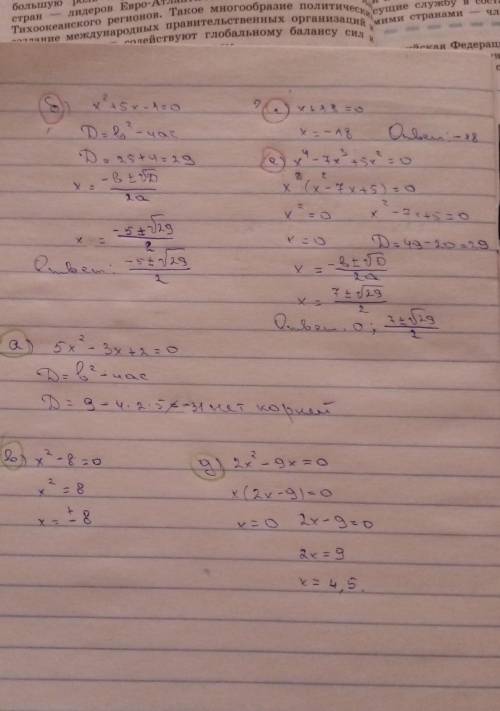 большую роль
стран — лидеров Евро-Атлант
Тихоокеанского регионов. Такое многообразие политическ
международных правительственных организаций
содействуют глобальному балансу сил
сущие службу в сост
мими странами — чл
Федерац
б) x² + 5x - 1 = 0
D = b² - 4ac
D = 25 + 4 = 29
x = (-b ± √D) / 2a
x = (-5 ± √29) / 2
Ответ: (-5 ± √29) / 2
x + 18 = 0
x = -18 Ответ: -18
е) x⁴ - 7x³ + 5x² = 0
x² (x² - 7x + 5) = 0
x² = 0 x² - 7x + 5 = 0
x = 0 D = 49 - 20 = 29
x = (-b ± √D) / 2a
x = (7 ± √29) / 2
Ответ. 0; (7 ± √29) / 2
а) 5x² - 3x + 2 = 0
D = b² - 4ac
D = 9 - 4 · 2 · 5 = -31 нет корней
в) x² - 8 = 0
x² = 8
x = ± 8
д) 2x² - 9x = 0
x (2x - 9) = 0
x = 0 2x - 9 = 0
2x = 9
x = 4,5.